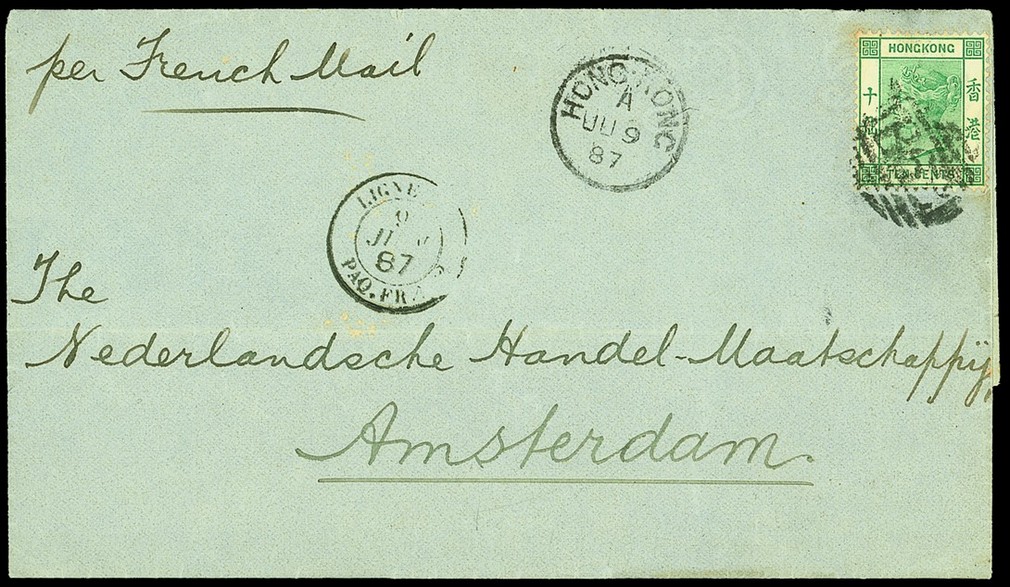 per French Mail
HONG-KONG
A
JU 9
87
HONGKONG
香港
十
TEN CENTS
LIGNE
9
87
PAQ. FR
The
Nederlandsche Handel-Maatschappij,
Amsterdam.